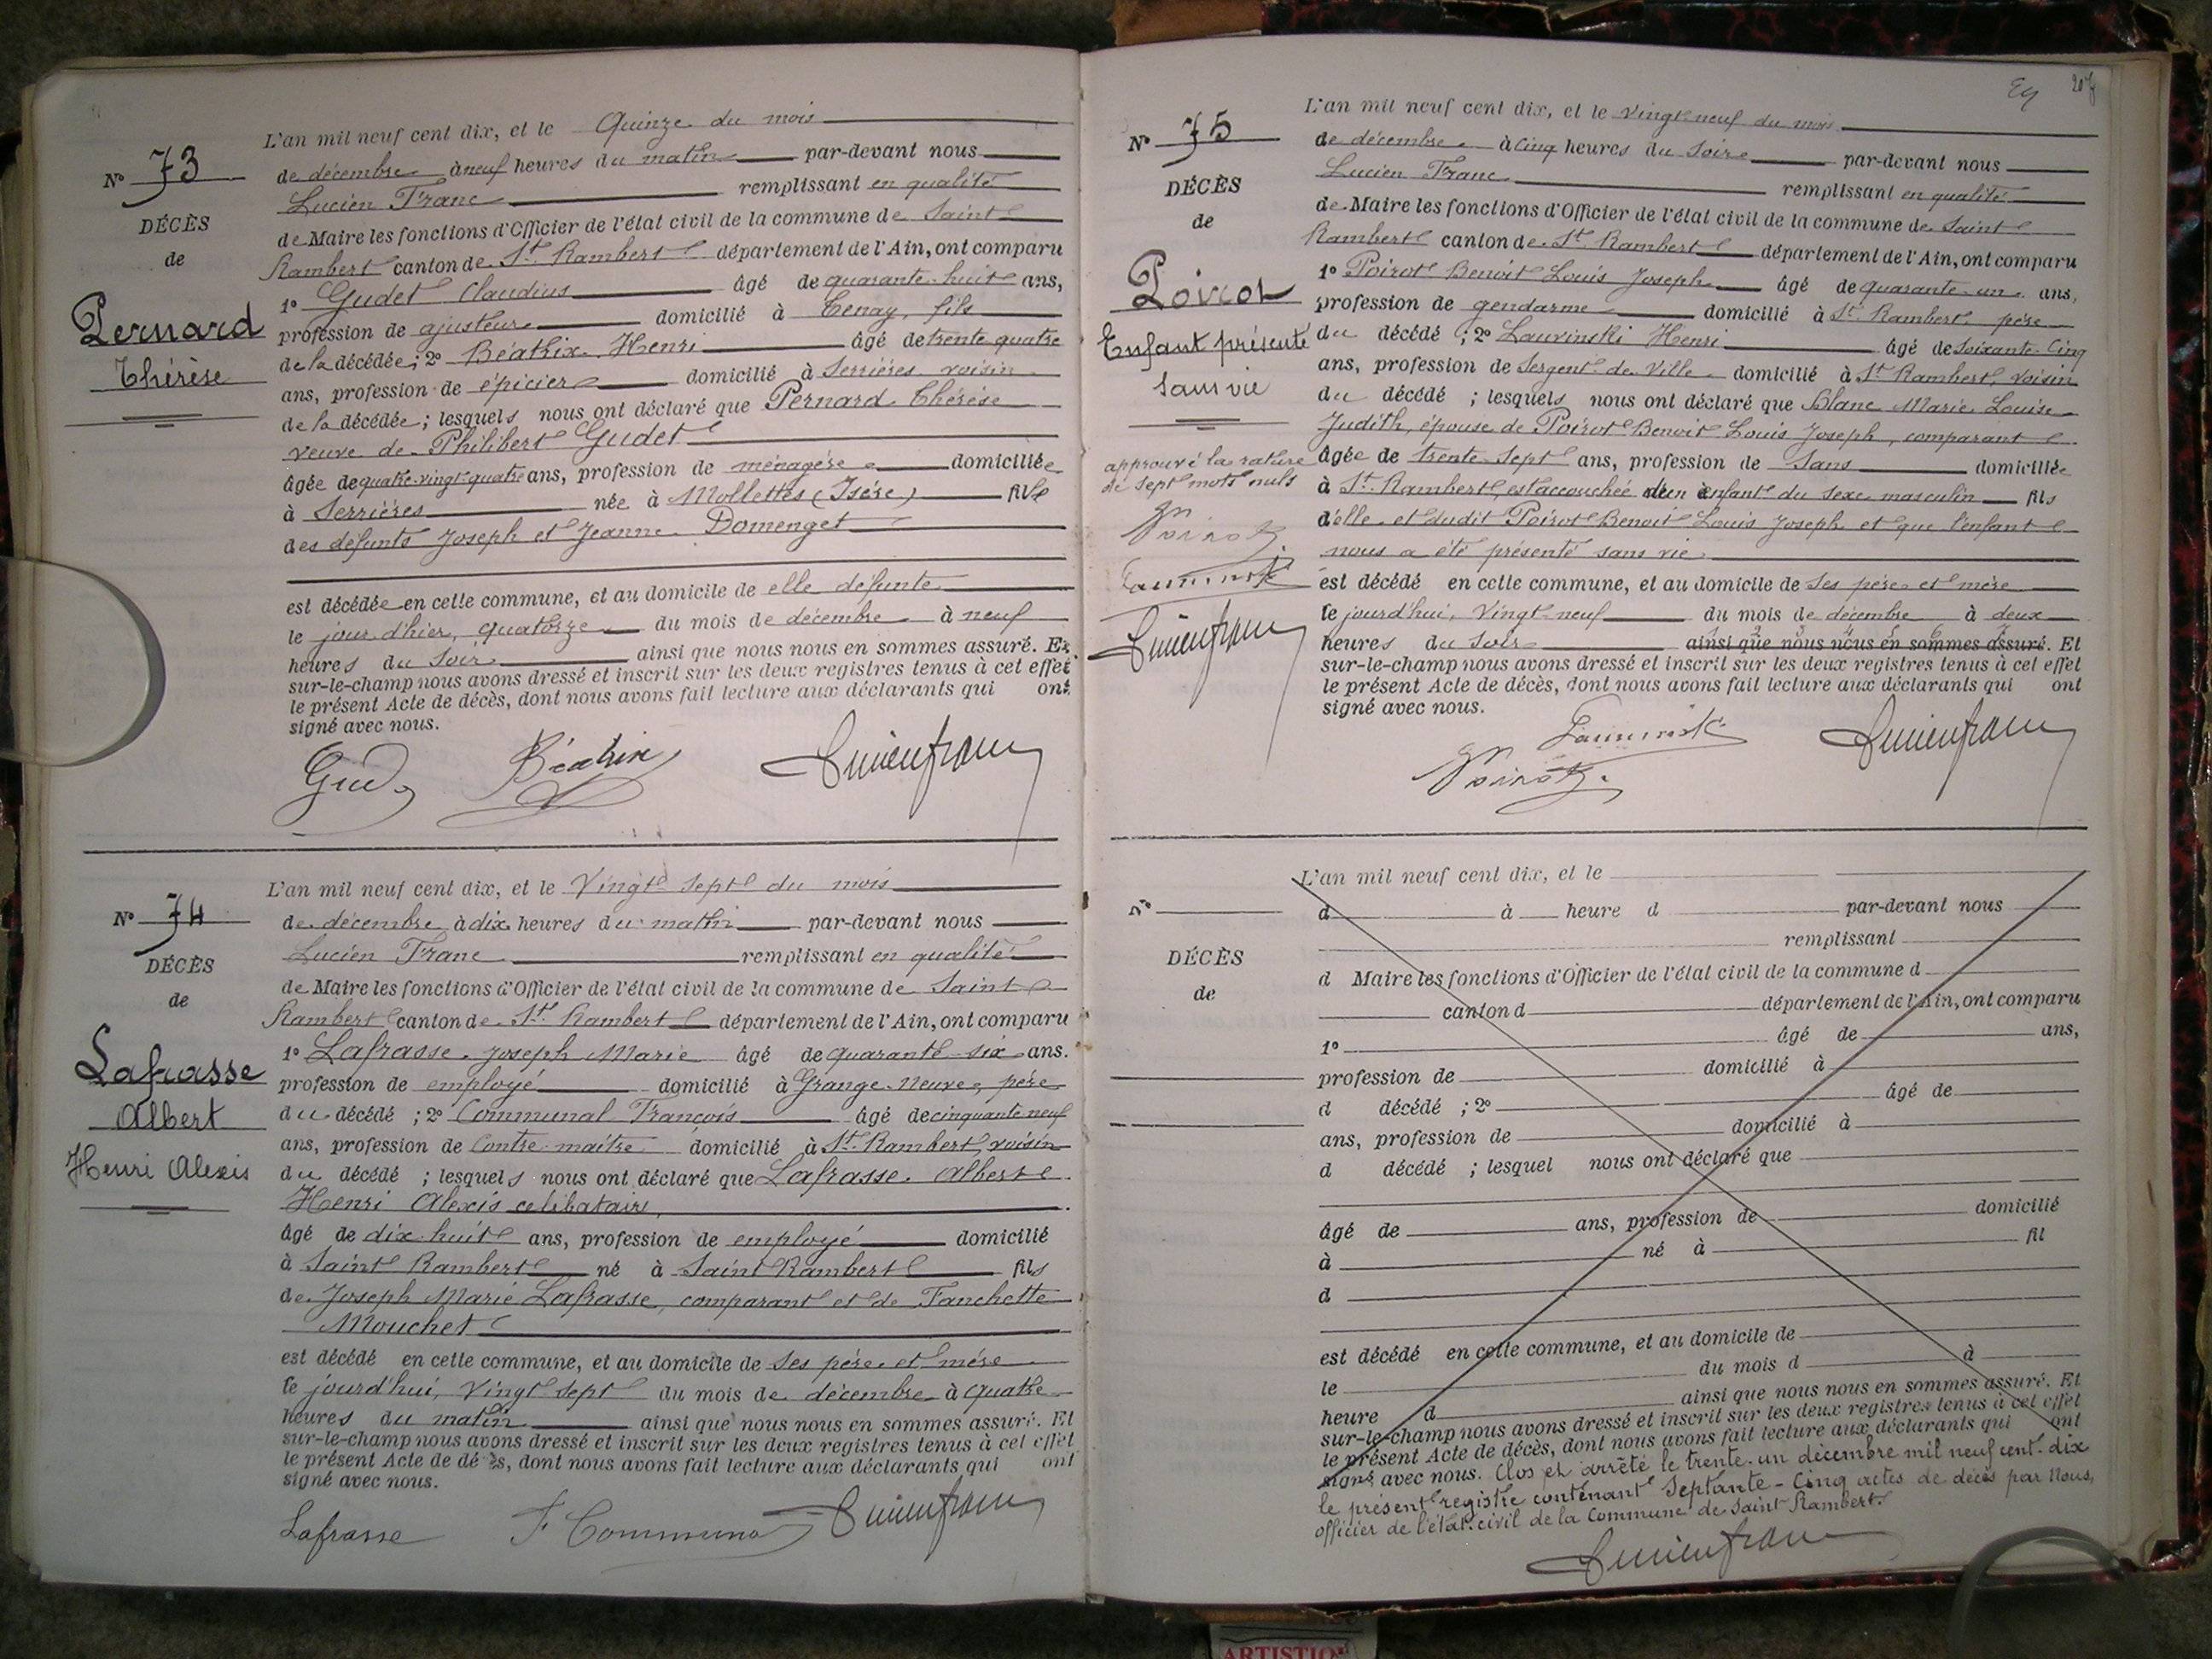 Nº 73
DÉCÈS
de
Pernard
Thérèse
L'an mil neuf cent dix, et le Quinze du mois
de décembre à neuf heures du matin par-devant nous
Lucien Franc remplissant en qualité
de Maire les fonctions d'Officier de l'état civil de la commune de Saint
Rambert canton de St Rambert département de l'Ain, ont comparu
1º Gudet Claudius âgé de quarante-huit ans,
profession de ajusteur domicilié à Tenay, fils
de la décédée; 2º Béatrix Henri âgé de trente quatre
ans, profession de épicier domicilié à Serrières voisin
de la décédée; lesquels nous ont déclaré que Pernard Thérèse
veuve de Philibert Gudet
âgée de quatre-vingt-quatre ans, profession de ménagère domiciliée
à Serrières née à Mollettes (Isère) fille
des défunts Joseph et Jeanne Domenget
est décédée en cette commune, et au domicile de elle défunte
le jour d'hier, quatorze du mois de décembre à neuf
heures du soir ainsi que nous nous en sommes assuré. Et
sur-le-champ nous avons dressé et inscrit sur les deux registres tenus à cet effet
le présent Acte de décès, dont nous avons fait lecture aux déclarants qui ont
signé avec nous.
Béatrix Lucien franc
Nº 74
DÉCÈS
de
Lafrasse
Albert
Henri Alexis
L'an mil neuf cent dix, et le Vingt sept du mois
de décembre à dix heures du matin par-devant nous
Lucien Franc remplissant en qualité
de Maire les fonctions d'Officier de l'état civil de la commune de Saint
Rambert canton de St Rambert département de l'Ain, ont comparu
1º Lafrasse Joseph Marie âgé de quarante six ans.
profession de employé domicilié à Grange-Neuve, père
du décédé; 2º Communal François âgé de cinquante neuf
ans, profession de Contre-maître domicilié à St Rambert, voisin
du décédé; lesquels nous ont déclaré que Lafrasse Albert
Henri Alexis celibataire,
âgé de dix-huit ans, profession de employé domicilié
à Saint Rambert né à Saint Rambert fils
de Joseph Marie Lafrasse, comparant et de Fanchette
Mouchet
est décédé en cette commune, et au domicile de ses père et mère
le jourd'hui, Vingt sept du mois de décembre à quatre
heures du matin ainsi que nous nous en sommes assuré. Et
sur-le-champ nous avons dressé et inscrit sur les deux registres tenus à cet effet
le présent Acte de décès, dont nous avons fait lecture aux déclarants qui ont
signé avec nous.
Lafrasse F Communal Lucien franc
207
Nº 75
DÉCÈS
de
Poirot
Enfant présenté
sans vie
approuvé la rature
de sept mots nuls
Poirot
Lucien franc
L'an mil neuf cent dix, et le vingt-neuf du mois
de décembre à cinq heures du soir par-devant nous
Lucien Franc remplissant en qualité
de Maire les fonctions d'Officier de l'état civil de la commune de Saint
Rambert canton de St Rambert département de l'Ain, ont comparu
1º Poirot Benoit Louis Joseph âgé de quarante-un ans,
profession de gendarme domicilié à St Rambert, père
du décédé; 2º Lauvinski Henri âgé de soixante-cinq
ans, profession de Sergent de Ville domicilié à St Rambert, voisin
du décédé; lesquels nous ont déclaré que Blanc Marie Louise
Judith, épouse de Poirot Benoit Louis Joseph, comparant
âgée de trente-sept ans, profession de Sans domiciliée
à St Rambert, est accouchée d'un enfant du sexe masculin fils
d'elle et dudit Poirot Benoit Louis Joseph et que l'enfant
nous a été présenté sans vie
est décédé en cette commune, et au domicile de ses père et mère
le jourd'hui, Vingt-neuf du mois de décembre à deux
heures du soir ainsi que nous nous en sommes assuré. Et
sur-le-champ nous avons dressé et inscrit sur les deux registres tenus à cet effet
le présent Acte de décès, dont nous avons fait lecture aux déclarants qui ont
signé avec nous.
Poirot Lucien franc
Nº
DÉCÈS
de
L'an mil neuf cent dix, et le
d à heure d par-devant nous
remplissant
d Maire les fonctions d'Officier de l'état civil de la commune d
canton d département de l'Ain, ont comparu
1º âgé de ans,
profession de domicilié à
d décédé; 2º âgé de
ans, profession de domicilié à
d décédé; lesquel nous ont déclaré que
âgé de ans, profession de domicilié
à né à fil
d
est décédé en cette commune, et au domicile de
le du mois d à
heure d ainsi que nous nous en sommes assuré. Et
sur-le-champ nous avons dressé et inscrit sur les deux registres tenus à cet effet
le présent Acte de décès, dont nous avons fait lecture aux déclarants qui ont
signé avec nous. Clos et arrêté le trente-un décembre mil neuf cent-dix
le présent registre contenant Septante-Cinq actes de décès par Nous,
officier de l'état-civil de la Commune de Saint Rambert.
Lucien franc
ARTISTIQ